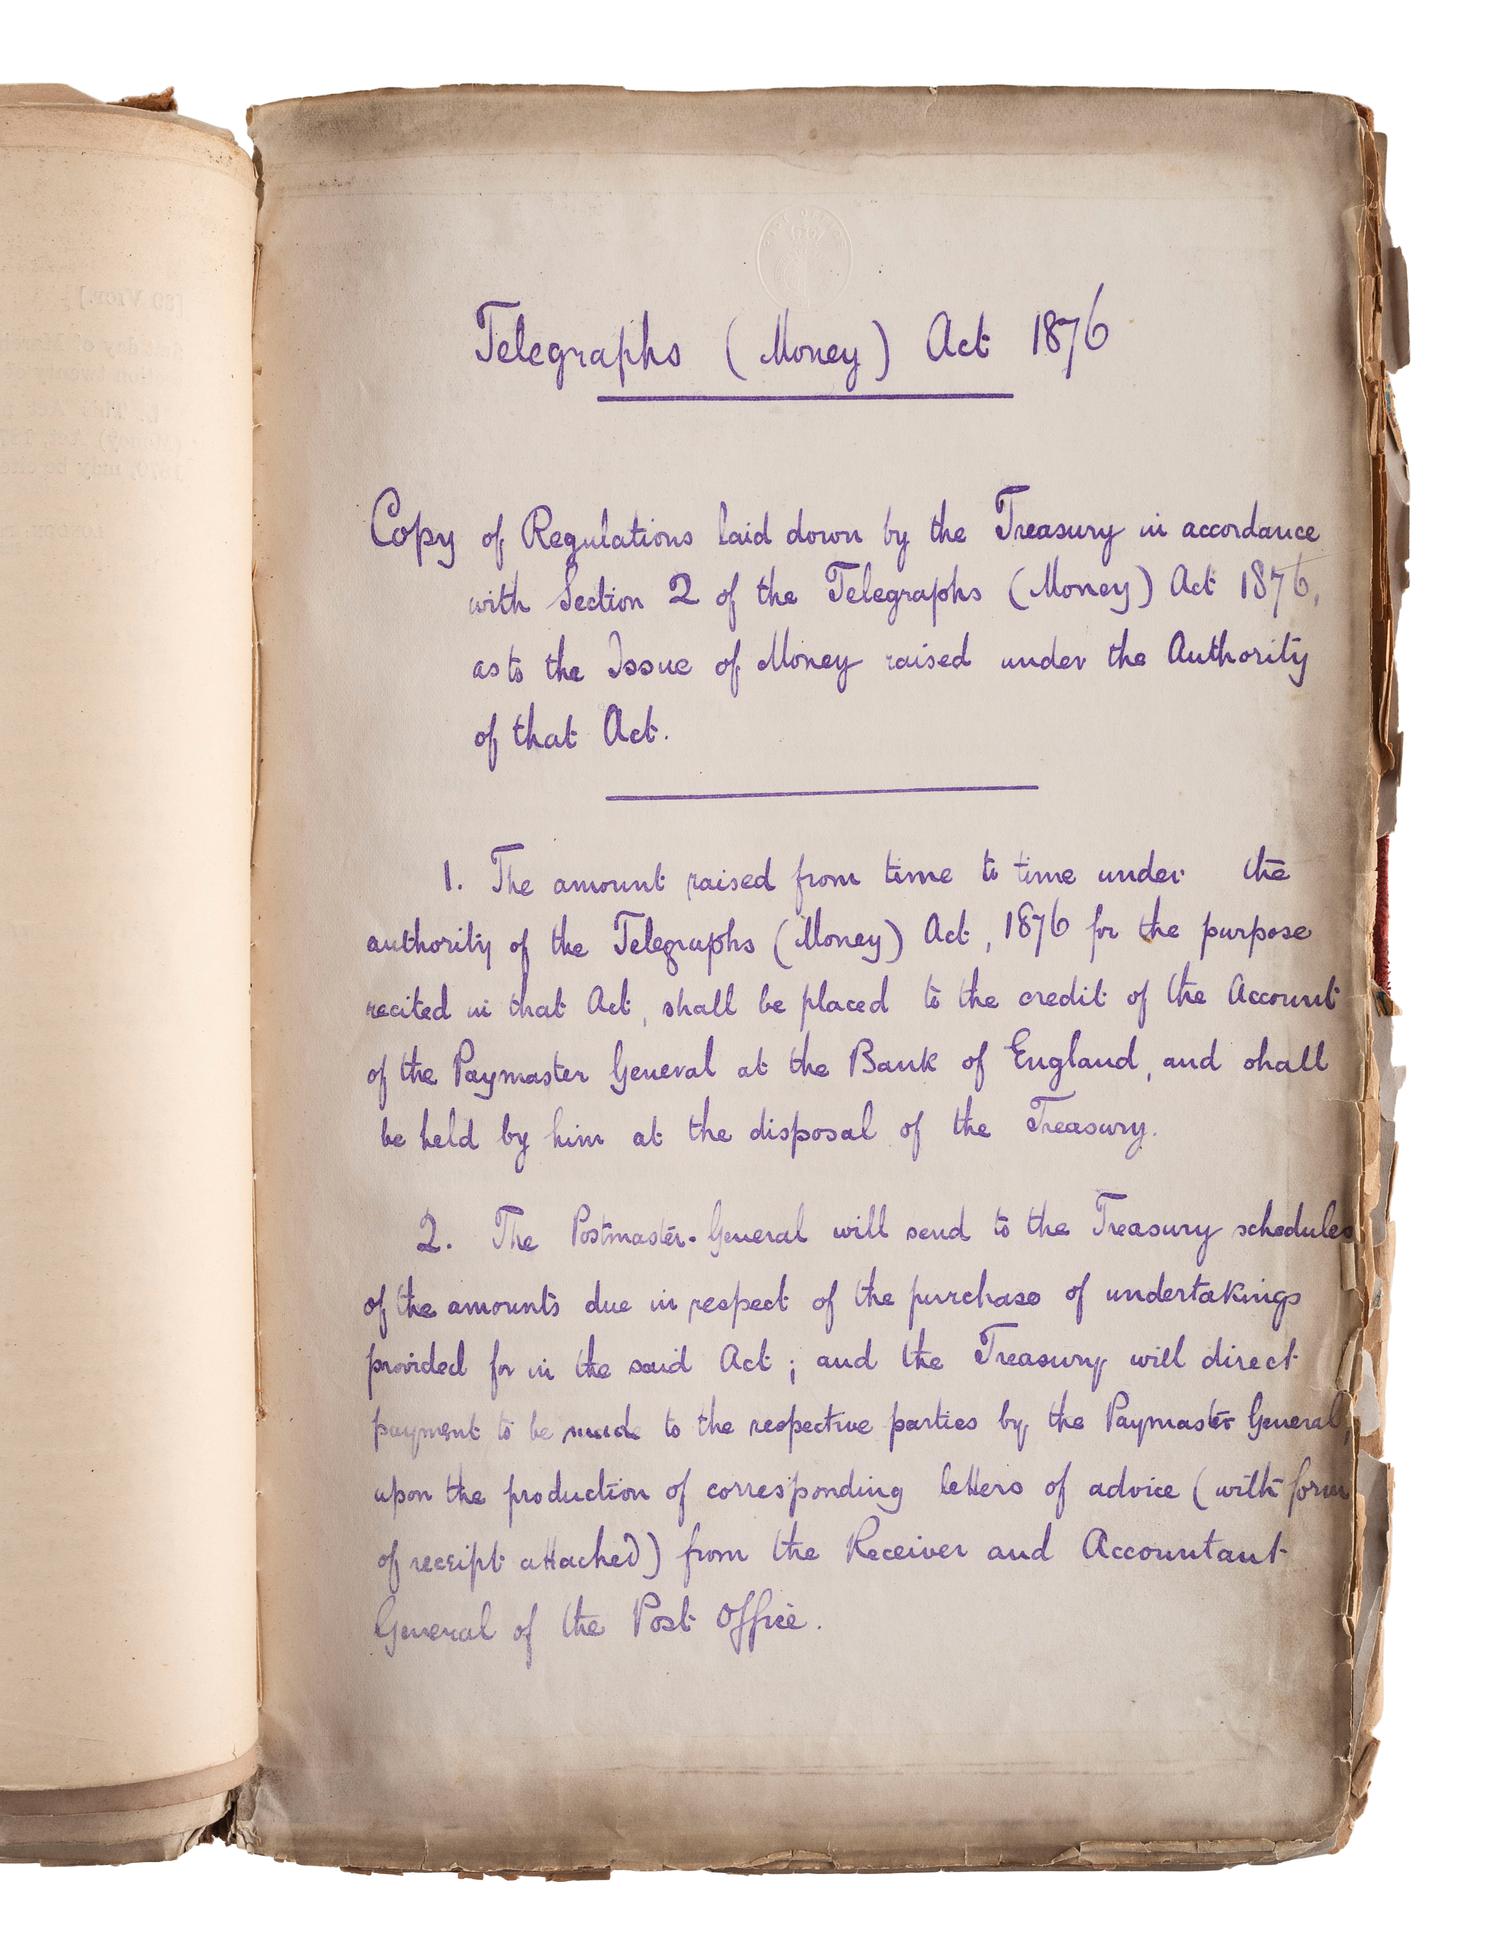 Telegraphs (Money) Act 1876
Copy of Regulations laid down by the Treasury in accordance
with Section 2 of the Telegraphs (Money) Act 1876,
as to the Issue of Money raised under the Authority
of that Act.
1. The amount raised from time to time under the
authority of the Telegraphs (Money) Act, 1876 for the purpose
recited in that Act, shall be placed to the credit of the Account
of the Paymaster General at the Bank of England, and shall
be held by him at the disposal of the Treasury.
2. The Postmaster-General will send to the Treasury schedules
of the amounts due in respect of the purchase of undertakings
provided for in the said Act; and the Treasury will direct
payment to be made to the respective parties by the Paymaster General,
upon the production of corresponding letters of advice (with form
of receipt attached) from the Receiver and Accountant
General of the Post Office.